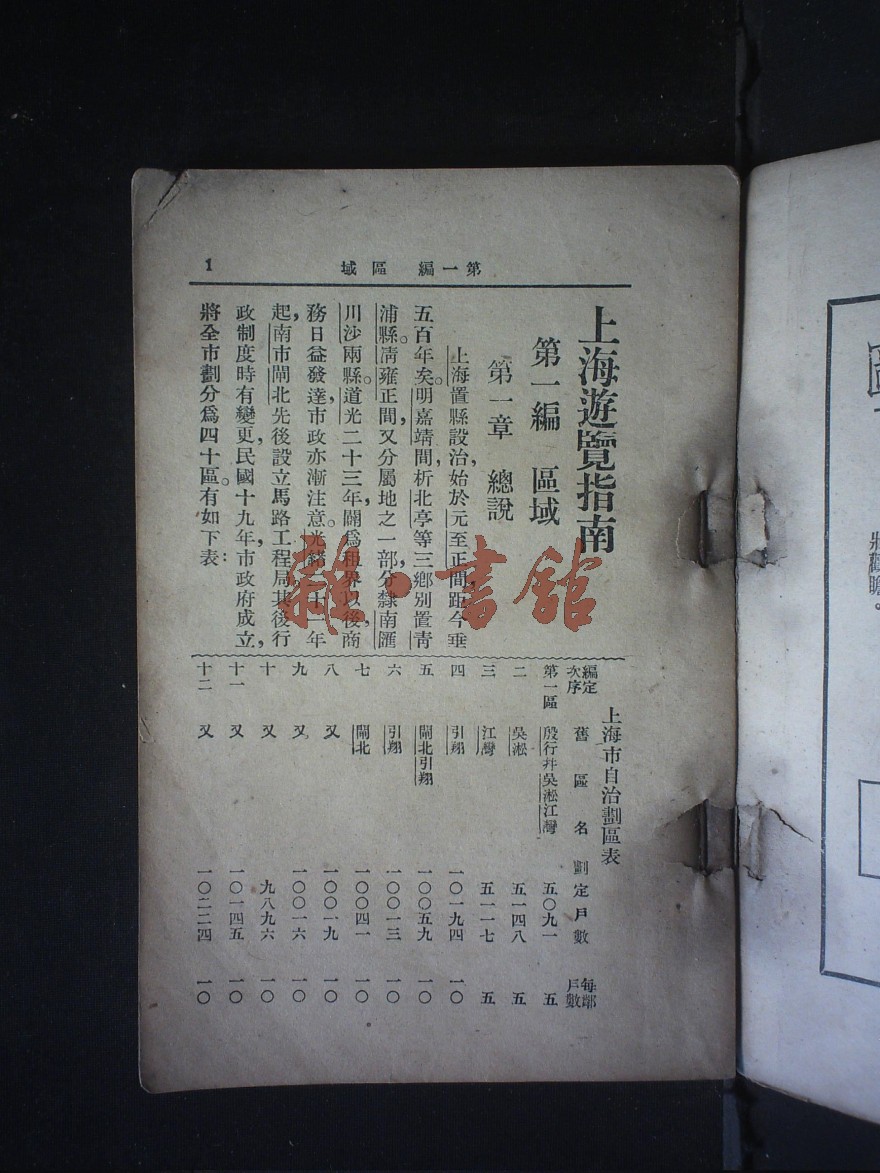 第一編　區域
1
上海遊覽指南
第一編　區域
第一章　總說
上海置縣設治，始於元至正間，距今垂
五百年矣。明嘉靖間，析北亭等三鄉別置青
浦縣。清雍正間，又分屬地之一部，分隸南匯
川沙兩縣。道光二十三年，闢爲租界，以後商
務日益發達，市政亦漸注意。光緒二十一年
起，南市閘北先後設立馬路工程局。其後行
政制度時有變更，民國十九年，市政府成立，
將全市劃分爲四十區。有如下表：
上海市自治劃區表
編定次序　舊區名　劃定戶數　每鄰戶數
第一區　殷行井吳淞江灣　五〇九一　五
二　吳淞　五一四八　五
三　江灣　五一一七　五
四　引翔　一〇一九四　一〇
五　閘北引翔　一〇〇五九　一〇
六　引翔　一〇〇一三　一〇
七　閘北　一〇〇四一　一〇
八　又　一〇〇一九　一〇
九　又　一〇〇一六　一〇
十　又　九八九六　一〇
十一　又　一〇一四五　一〇
十二　又　一〇二二四　一〇
雜·書館